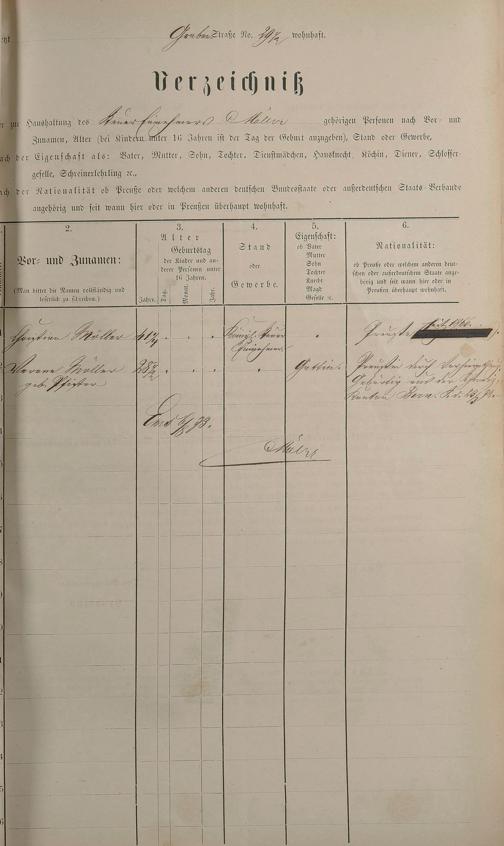 Graben Straße No. 29½ wohnhaft.
Verzeichniß
zur Haushaltung des Steuer Einnehmers Müller gehörigen Personen nach Vor- und
Zunamen, Alter (bei Kindern unter 16 Jahren ist der Tag der Geburt anzugeben), Stand oder Gewerbe,
nach der Eigenschaft als: Vater, Mutter, Sohn, Tochter, Dienstmädchen, Hausknecht, Köchin, Diener, Schlosser-
geselle, Schreinerlehrling ꝛc.,
nach der Nationalität ob Preuße oder welchem anderen deutschen Bundesstaate oder außerdeutschen Staats-Verbande
angehörig und seit wann hier oder in Preußen überhaupt wohnhaft.
2.
Vor- und Zunamen:
(Man bittet die Namen vollständig und
leserlich zu schreiben.)
3.
Alter
Geburtstag
der Kinder und an-
derer Personen unter
16 Jahren.
Jahre.
Tag.
Monat.
Jahr.
4.
Stand
oder
Gewerbe.
5.
Eigenschaft:
ob Vater
Mutter
Sohn
Tochter
Knecht
Magd
Geselle ꝛc.
6.
Nationalität:
ob Preuße oder welchem anderen deut-
schen oder außerdeutschen Staate ange-
hörig und seit wann hier oder in
Preußen überhaupt wohnhaft.
Christian Müller
Königl. Steuer
Einnehmer
Preuße
Verena Müller
geb. Pfister
Gattin.
Preußin durch
Gebürtig aus der
Kanton Bern.
Müller